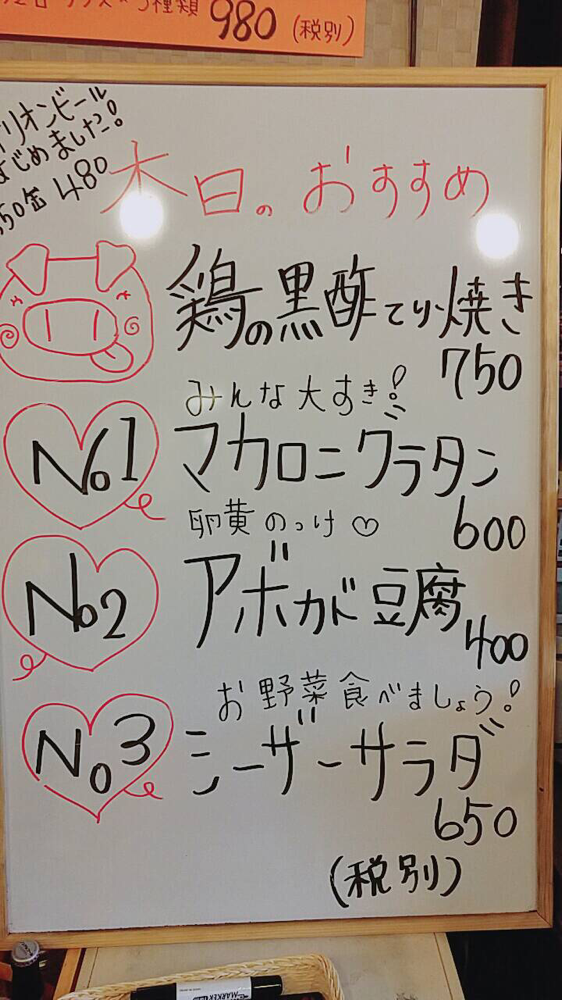 3種類 980 (税別)
リオンビール
じめました!
50缶 480
本日のおすすめ
鶏の黒酢てり焼き
750
みんな大すき!
No1 マカロニグラタン
600
卵黄のっけ♡
No2 アボカド豆腐
400
お野菜食べましょう!
No3 シーザーサラダ
650
(税別)
MARKER